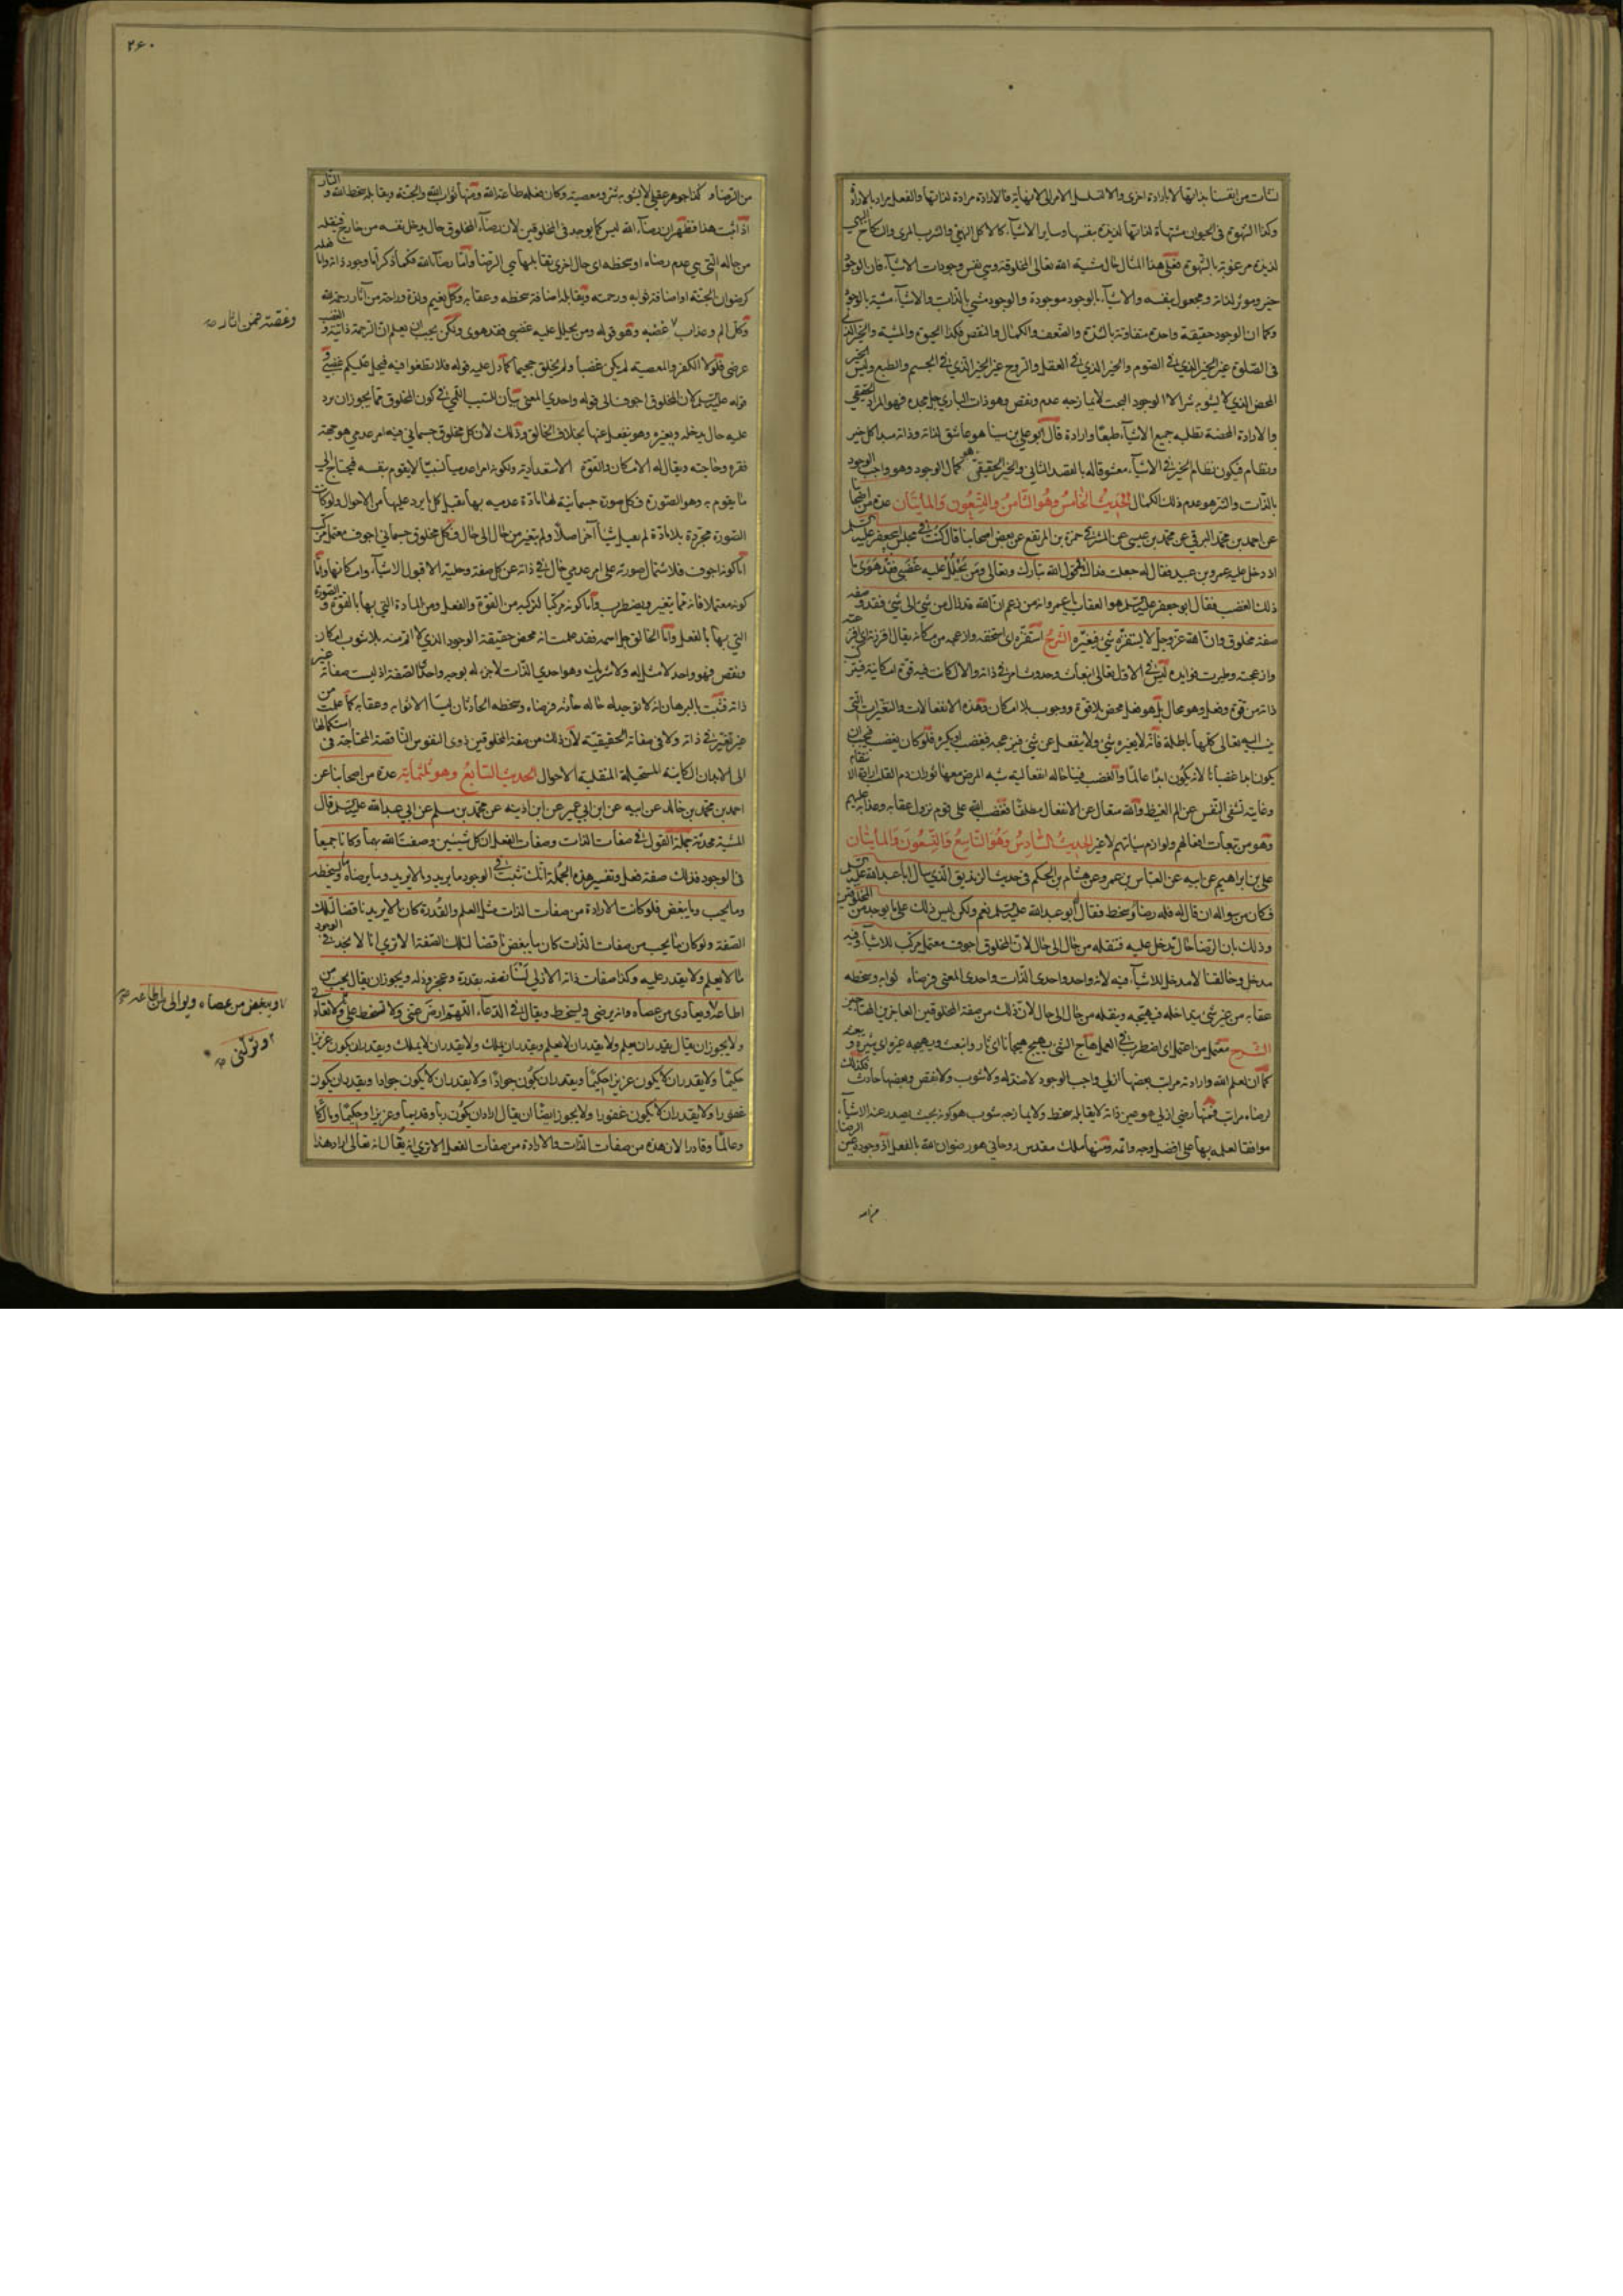 نشات من انفسنا بذاتها لا بارادة اخرى والا لتسلسل الامر الى لا نهاية فالارادة مرادة لذاتها والفعل مراد بالارادة
وكذا الشهوة فى الحيوان مشتهاة لذاتها لذيذة بنفسها وساير الاشياء كالاكل الهنئ والشرب المرى والنكاح البهى
لذيذة مرغوبة بالشهوة فعلى هذا المثال حال مشية الله تعالى المخلوقة وهى نفس وجودات الاشياء فان الوجود
خير ومؤثر لذاته ومجعول بنفسه والاشياء بالوجود موجودة والوجود مشيئ بالذات والاشياء مشية بالوجود
وكما ان الوجود حقيقة واحدة متفاوتة بالشدة والضعف والكمال والنقص فكذا الخيرية والمشية والخير الذى
فى الصلوة غير الخير الذى فى الصوم والخير الذى فى العقل والروح غير الخير الذى فى الجسم والطبع وليس الخير
المحض الذى لا يشوبه شر الا الوجود البحت لا يمازجه عدم ونقص وهو ذات البارى جل مجده فهو المراد الحقيقى
والارادة المحضة تطلبه جميع الاشياء طبعا وارادة قال ابو على بن سينا هو عاشق لذاته وذاته مبدا كل خير
ونظام فيكون نظام الخير فى الاشياء معشوقا له بالقصد الثانى والخير الحقيقى هو كمال الوجود وهو واجب الوجود
بالذات والشر هو عدم ذلك الكمال الحديث الخامس وهو الثامن والتسعون والمائتان عدة من اصحابنا
عن احمد بن محمد البرقى عن محمد بن عيسى عن المشرقى حمزة بن المرتفع عن بعض اصحابنا قال كنت فى مجلس ابى جعفر عليه السلم
اذ دخل عليه عمرو بن عبيد فقال له جعلت فداك قول الله تبارك وتعالى ومن يحلل عليه غضبى فقد هوى ما
ذلك الغضب فقال ابو جعفر عليه السلم هو العقاب يا عمرو انه من زعم ان الله قد زال من شئ الى شئ فقد وصفه
صفة مخلوق وان الله عز وجل لا يستفزه شئ فيغيره الشرح استفزه اى استخفه وازعجه عن مكانه يقال افززته اى افزعته
وازعجته وطيرت فؤاده ليس فى الاول تعالى انبعاث وحدوث امر فى ذاته والا لكانت فيه قوة امكانية فيتركب
ذاته من قوة وفعل وهو محال بل هو فعل محض بلا قوة ووجوب بلا امكان وهذه الانفعالات والتغيرات التى
ينسب اليه تعالى كلها باطلة فانه لا يغيره شئ ولا ينفعل عن شئ فيزعجه فيغضب او يكره فلو كان يغضب فيجب ان
يكون ابدا غضبانا لانه يكون ابدا عالما والغضب فينا حالة انفعالية شبه المرض معها ثوران دم القلب ارادة الانتقام
وغايته تشفى النفس عن الم الغيظ والله متعال عن الانفعال مطلقا فغضب الله على قوم نزول عقابه وعذابه عليهم
وهو من تبعات افعالهم ولوازم سيئاتهم لا غير الحديث السادس وهو التاسع والتسعون والمائتان
على بن ابراهيم عن ابيه عن العباس بن عمرو عن هشام بن الحكم فى حديث الزنديق الذى سال ابا عبد الله عليه السلم
فكان من سواله ان قال له فله رضا وسخط فقال ابو عبد الله عليه السلم نعم ولكن ليس ذلك على ما يوجد من المخلوقين
وذلك بان الرضا حال تدخل عليه فتنقله من حال الى حال لان المخلوق اجوف معتمل مركب للاشياء فيه
مدخل وخالقنا لا مدخل للاشياء فيه لانه واحد واحدى الذات واحدى المعنى فرضاه ثوابه وسخطه
عقابه من غير شئ يتداخله فيهيجه وينقله من حال الى حال لان ذلك من صفة المخلوقين العاجزين المحتاجين
الشرح معتمل من اعتمل اى اضطرب فى العمل هاج الشئ يهيج هيجانا اى ثار وانبعث وهيجه غيره اى يثيره و
كما ان لعلم الله وارادته مراتب بعضها ازلى واجب الوجود لا ضد له ولا شوب ولا نقص وبعضها حادث فكذلك
لرضاه مراتب فمنها رضى ازلى هو عين ذاته لا يقابله سخط ولا يمازجه شوب هو كونه بحيث يصدر عنه الاشياء
موافقا لعلمه بها على افضل وجه واتمه ومنها ملك مقدس روحانى هو رضوان الله بالفعل اذ وجوده عين الرضا
٢٦٠
من الرضا وكذا جوهر عقلى لا يشوبه شر ومعصية وكان فعله طاعة الله ومنها ثواب الله والجنة ويقابله سخط الله والنار
اذا ثبت هذا فظهر ان رضاء الله ليس كما يوجد فى المخلوقين لان رضاء المخلوق حال يدخل نفسه من خارج فينقله
من حاله التى هى عدم رضاه او سخطه الى حال اخرى يقابلها هى الرضا واما رضاء الله فكما ذكر اما وجود ذاته واما
كرضوان الجنة او اضافة ثوابه ورحمته ويقابلها اضافة سخطه وعقابه وكل نعيم ولذة وراحة من آثار رحمة الله
وكل الم وعذاب غضبه وهو قوله ومن يحلل عليه غضبى فقد هوى ولكن يجب ان يعلم ان الرحمة ذاتية والغضب
عرضى فلولا الكفر والمعصية لم يكن غضبا ولم يخلق جحيما كما دل عليه قوله فلا تطغوا فيه فيحل عليكم غضبى
قوله عليه السلم لان المخلوق اجوف الى قوله واحدى المعنى بيان السبب اللمى فى كون المخلوق مما يجوز ان يرد
عليه حال يدخله ويغيره وهو ينفعل عنها بخلاف الخالق وذلك لان كل مخلوق جسمانى فيه امر عدمى هو جهة
فقره وحاجته ويقال له الامكان والقوة الاستعدادية ولكونه امرا عدميا نسبيا لا يقوم بنفسه فيحتاج الى
ما يقوم به وهو الصورة فكل صورة جسمانية لها مادة عدمية بها تقبل كل ما يرد عليها من الاحوال ولو كانت
الصورة مجردة بلا مادة لم تقبل شيئا آخر اصلا ولم يتغير من حال الى حال فكل مخلوق جسمانى اجوف معتمل مركب
اما كونه اجوف فلاشتمال صورته على امر عدمى خال فى ذاته عن كل صفة وحلية الا قبول الاشياء وامكانها واما
كونه معتملا فانه مما يتغير ويضطرب واما كونه مركبا لتركبه من القوة والفعل ومن المادة التى بها بالقوة والصورة
التى بها بالفعل واما الخالق جل اسمه فقد علمت انه محض حقيقة الوجود الذى لا اتم منه بلا شوب امكان
ونقص فهو واحد لا مثل له ولا شريك له وهو احدى الذات لا جزء له بوجه واحدى الصفة اذ ليست صفاته غير
ذاته فثبت بالبرهان انه لا توجد له حالة حادثة فرضاه وسخطه الحادثان ليسا الا ثوابه وعقابه كما علمت من
غير تغير فى ذاته ولا فى صفاته الحقيقية لان ذلك من صفة المخلوقين ذوى النفوس الناقصة المحتاجة فى استكمالها
الى الابدان الكاينة المستحيلة المنقلبة الاحوال الحديث السابع وهو ثلثمائة عدة من اصحابنا عن
احمد بن محمد بن خالد عن ابيه عن ابن ابى عمير عن ابن اذينة عن محمد بن مسلم عن ابى عبد الله عليه السلم قال
المشية محدثة جملة القول فى صفات الذات وصفات الفعل ان كل شيئين وصفت الله بهما وكانا جميعا
فى الوجود فذلك صفة فعل وتفسير هذه الجملة انك تثبت فى الوجود ما يريد وما لا يريد وما يرضاه وما يسخطه
وما يحب وما يبغض فلو كانت الارادة من صفات الذات مثل العلم والقدرة كان ما لا يريد ناقضا لتلك
الصفة ولو كان ما يحب من صفات الذات كان ما يبغض ناقضا لتلك الصفة الا ترى انا لا نجد فى الوجود
ما لا يعلم ولا يقدر عليه وكذا صفات ذاته الازلى لسنا نصفه بقدرة وعجز وذلة ويجوز ان يقال يحب من
اطاعه ويعادى من عصاه وانه يرضى ويسخط ويقال فى الدعاء اللهم ارض عنى ولا تسخط على وتولنى ولا تعادنى
ولا يجوز ان يقال يقدر ان يعلم ولا يقدر ان لا يعلم ويقدر ان يملك ولا يقدر ان لا يملك ويقدر ان يكون عزيزا
حكيما ولا يقدر ان لا يكون عزيزا حكيما ويقدر ان يكون جوادا ولا يقدر ان لا يكون جوادا ويقدر ان يكون
غفورا ولا يقدر ان لا يكون غفورا ولا يجوز ايضا ان يقال اراد ان يكون ربا وقديما وعزيزا وحكيما ومالكا
وعالما وقادرا لان هذه من صفات الذات والارادة من صفات الفعل الا ترى انه يقال انه تعالى اراد هذا
ونقمة فمن اثار
ويبغض من عصاه ويوالى من اطاعه
وتولنى